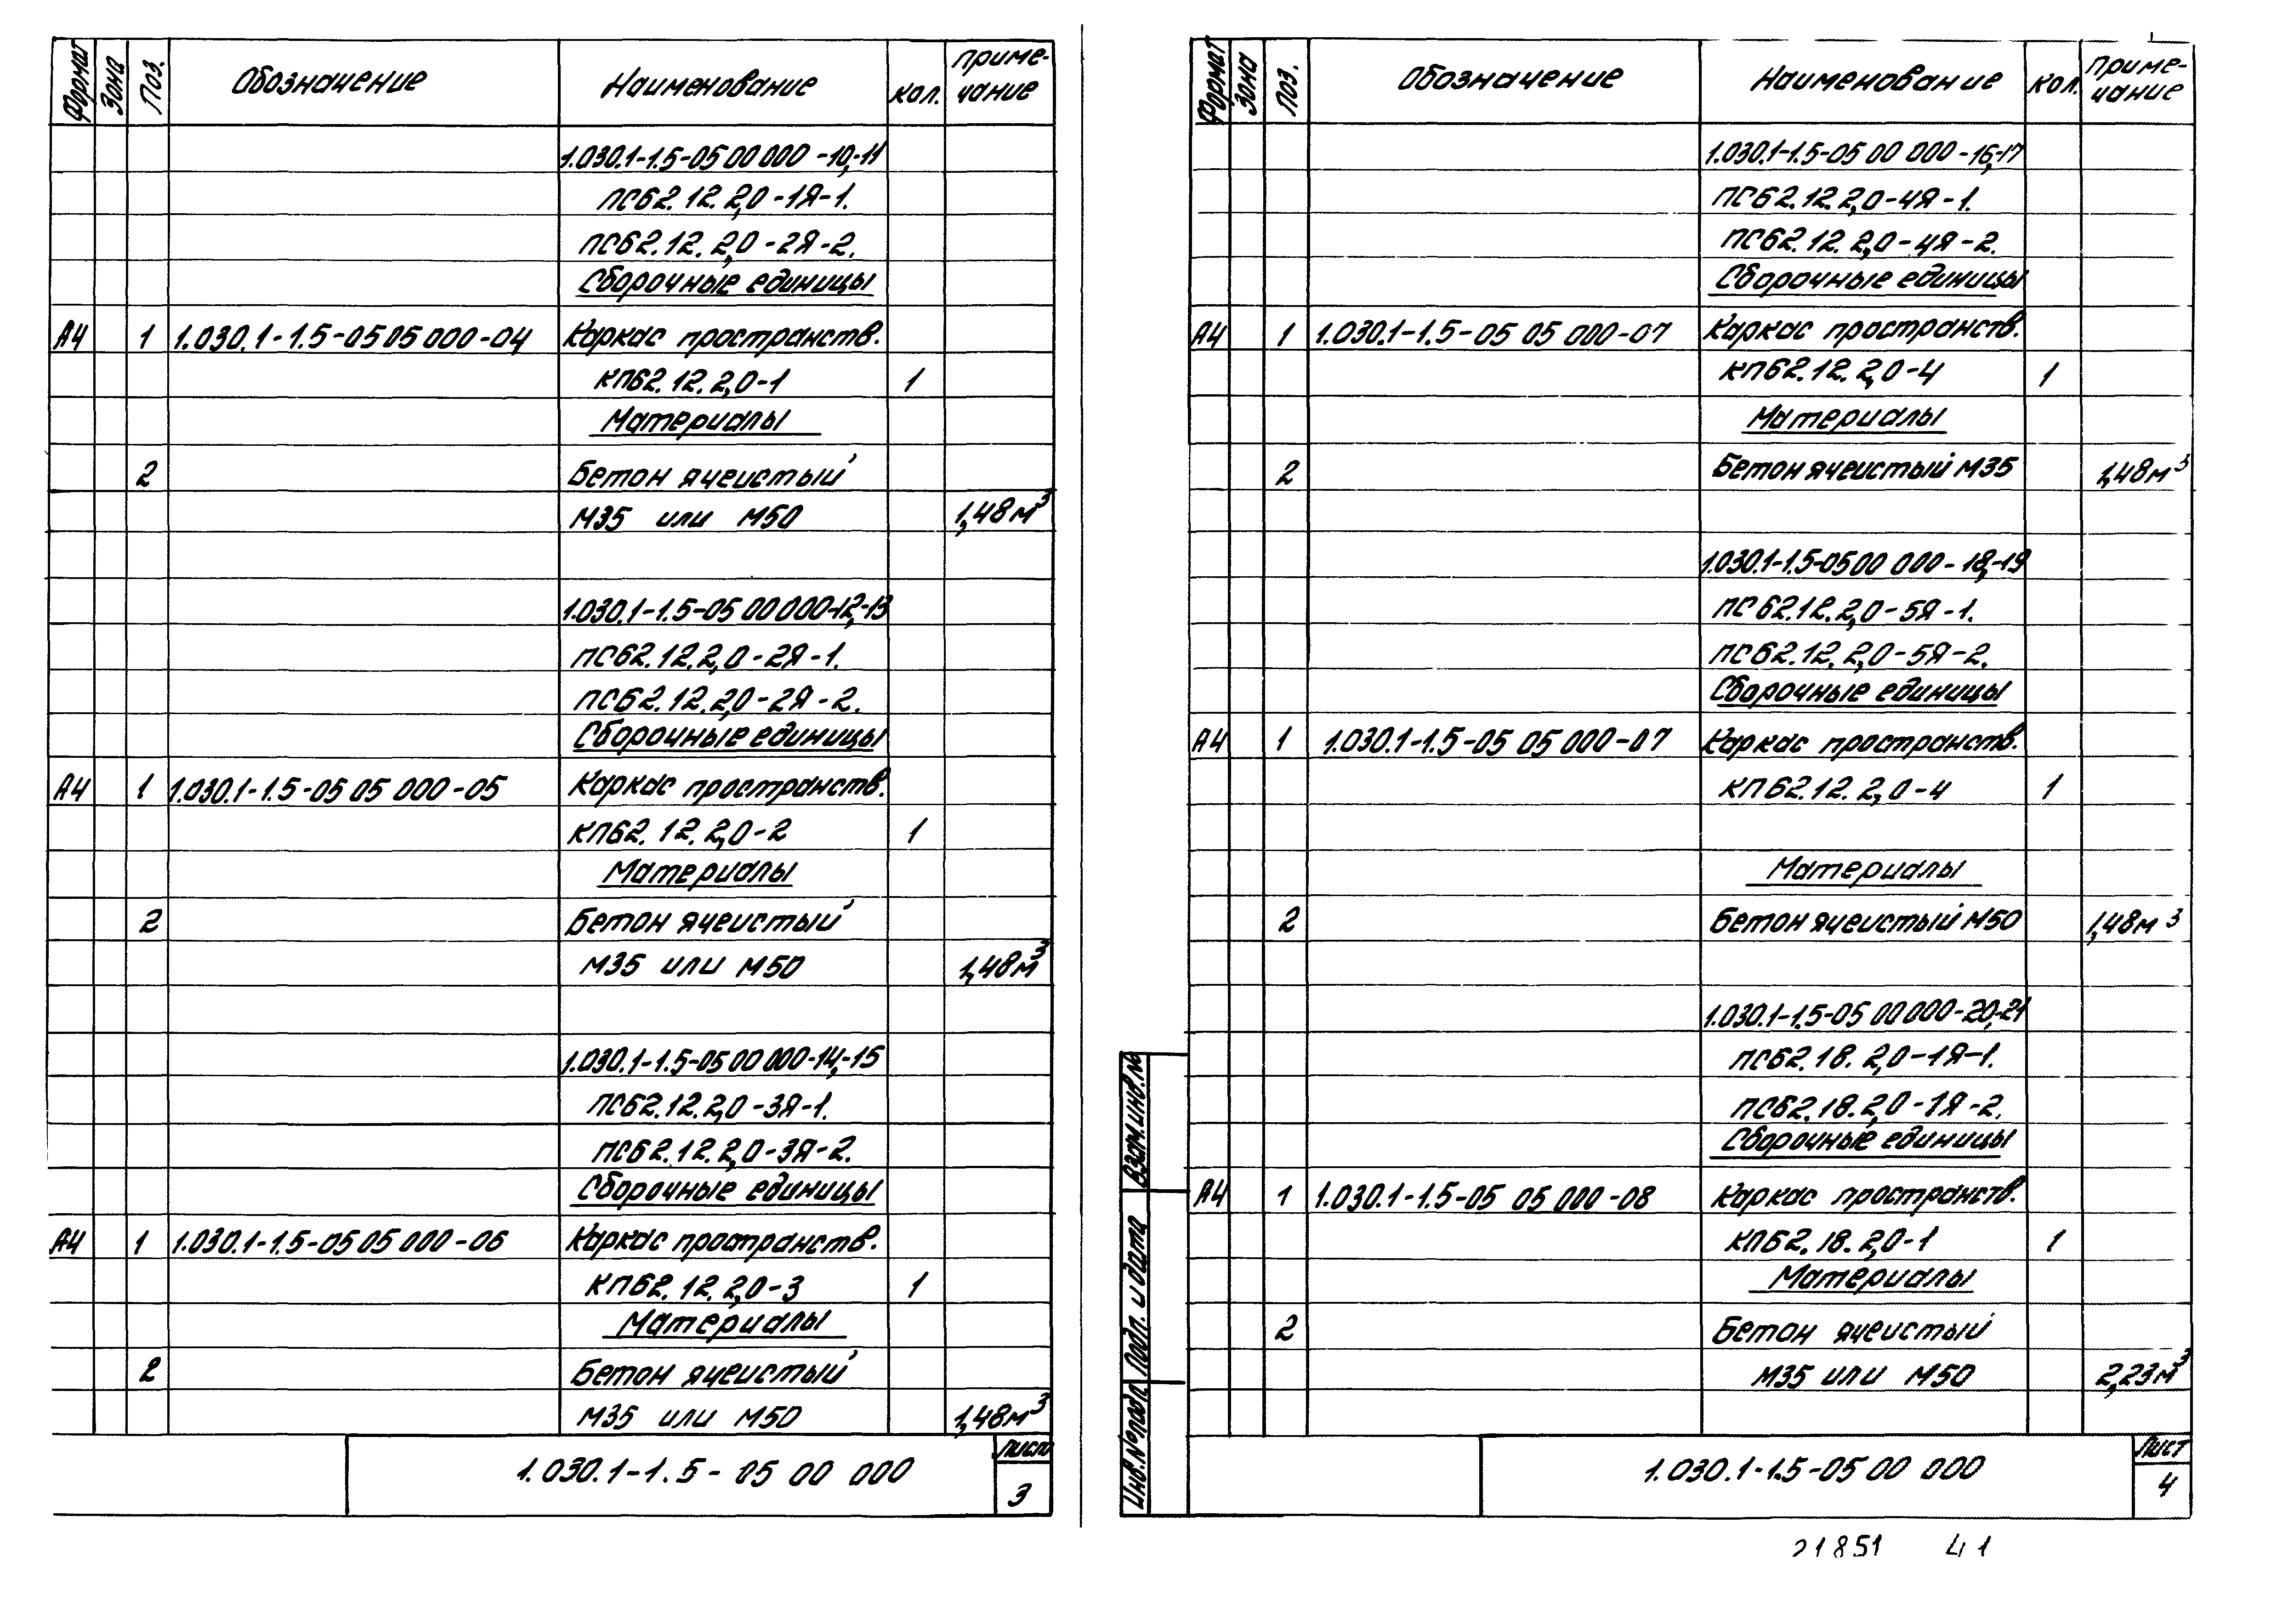 Формат Зона Поз. Обозначение Наименование Кол. Приме-
чание
1.030.1-1.5-05 00 000-10,-11
ПС62.12.2,0-1Я-1.
ПС62.12.2,0-2Я-2.
Сборочные единицы
А4 1 1.030.1-1.5-05 05 000-04 Каркас пространств.
КП62.12.2,0-1 1
Материалы
2 Бетон ячеистый
М35 или М50 1,48м³
1.030.1-1.5-05 00 000-12,-13
ПС62.12.2,0-2Я-1.
ПС62.12.2,0-2Я-2.
Сборочные единицы
А4 1 1.030.1-1.5-05 05 000-05 Каркас пространств.
КП62.12.2,0-2 1
Материалы
2 Бетон ячеистый
М35 или М50 1,48м³
1.030.1-1.5-05 00 000-14,-15
ПС62.12.2,0-3Я-1.
ПС62.12.2,0-3Я-2.
Сборочные единицы
А4 1 1.030.1-1.5-05 05 000-06 Каркас пространств.
КП62.12.2,0-3 1
Материалы
2 Бетон ячеистый
М35 или М50 1,48м³
1.030.1-1.5-05 00 000
Лист
3
Формат Зона Поз. Обозначение Наименование Кол. Приме-
чание
1.030.1-1.5-05 00 000-16,-17
ПС62.12.2,0-4Я-1.
ПС62.12.2,0-4Я-2.
Сборочные единицы
А4 1 1.030.1-1.5-05 05 000-07 Каркас пространств.
КП62.12.2,0-4 1
Материалы
2 Бетон ячеистый М35 1,48м³
1.030.1-1.5-05 00 000-18,-19
ПС62.12.2,0-5Я-1.
ПС62.12.2,0-5Я-2.
Сборочные единицы
А4 1 1.030.1-1.5-05 05 000-07 Каркас пространств.
КП62.12.2,0-4 1
Материалы
2 Бетон ячеистый М50 1,48м³
1.030.1-1.5-05 00 000-20,-21
ПС62.18.2,0-1Я-1.
ПС62.18.2,0-1Я-2.
Сборочные единицы
А4 1 1.030.1-1.5-05 05 000-08 Каркас пространств.
КП62.18.2,0-1 1
Материалы
2 Бетон ячеистый
М35 или М50 2,23м³
Взам.инв.№
Подп. и дата
Инв.№подл.
1.030.1-1.5-05 00 000
Лист
4
21851 41